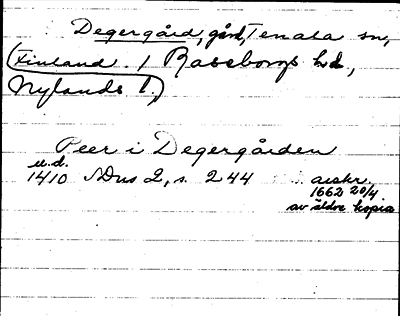 Degergård, gård, Tenala sn,
(Finland. / Raseborgs hd,
Nylands l.)
Peer i Degergården
u.d.
1410 SDns 2, s. 244 avskr.
1662 20/4
av äldre kopia